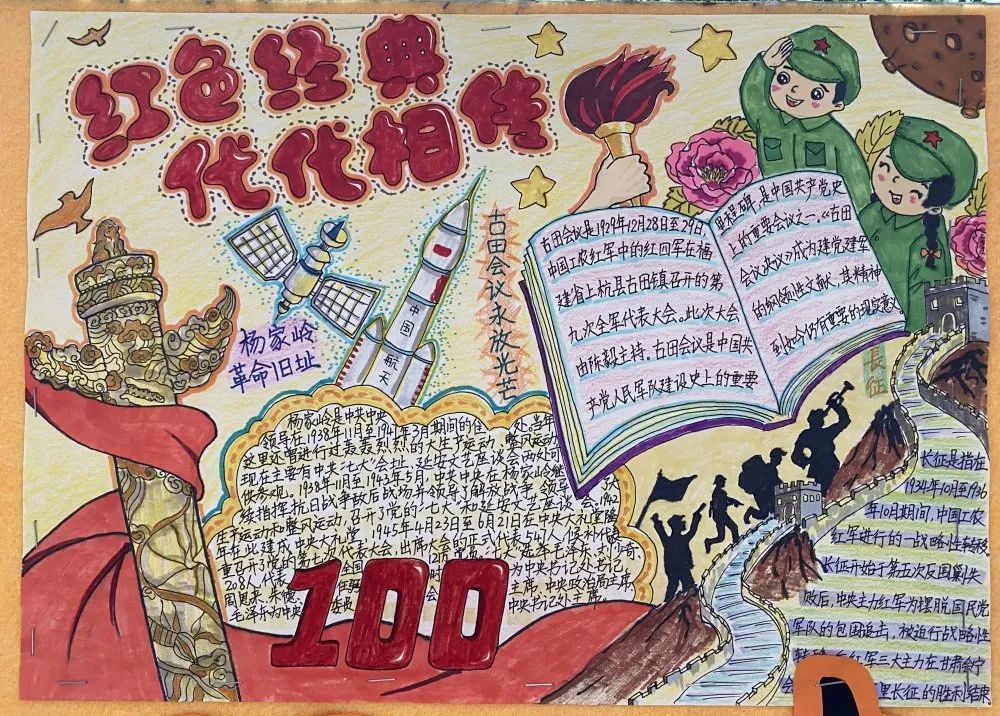 红色经典
代代相传
古田会议永放光芒
中国
航天
杨家岭
革命旧址
古田会议是1929年12月28日至29日,
中国工农红军中的红四军在福
建省上杭县古田镇召开的第
九次全军代表大会。此次大会
由陈毅主持。古田会议是中国共
产党人民军队建设史上的重要
里程碑,是中国共产党史
上的重要会议之一,《古田
会议决议》成为建党建军
的纲领性文献,其精神
到如今仍有重要的现实意义
杨家岭是中共中央
领导在1938年11月至1947年3月期间的住处,当年
这里还曾进行过轰轰烈烈的大生产运动、整风运动,
现在主要有中共“七大”会址、延安文艺座谈会两处可
供参观。1938年11月至1943年5月,中共中央在杨家岭继
续指挥抗日战争敌后战场并领导了解放战争,领导了大
生产运动和整风运动,召开了党的“七大”和延安文艺座谈会,1942
年在此建成中央大礼堂,1945年4月23日至6月21日在中央大礼堂隆
重召开了党的第七次代表大会,出席大会的正式代表547人,候补代表
208人,代表全国
周恩来、朱德、任弼时为中央书记处书记,
毛泽东为中央委员会主席、中央政治局主席、
中央书记处主席。
100
长征
长征是指在
1934年10月至1936
年10月期间,中国工农
红军进行的一战略性转移
长征开始于第五次反围剿失
败后,中央主力红军为摆脱国民党
军队的包围追击,被迫进行战略性
红军三大主力在甘肃会宁
会 里长征的胜利结束。